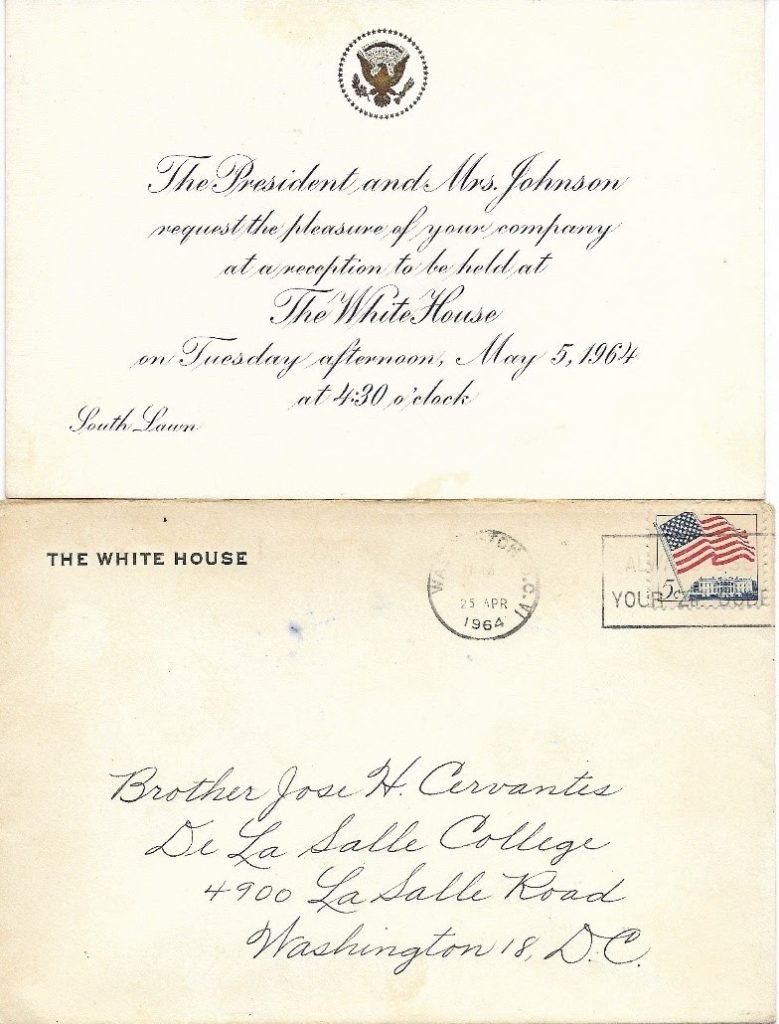 The President and Mrs. Johnson
request the pleasure of your company
at a reception to be held at
The White House
on Tuesday afternoon, May 5, 1964
at 4:30 o'clock
South Lawn
THE WHITE HOUSE
25 APR
1964
5c
YOUR
Brother Jose H. Cervantes
De La Salle College
4900 La Salle Road
Washington 18, D.C.